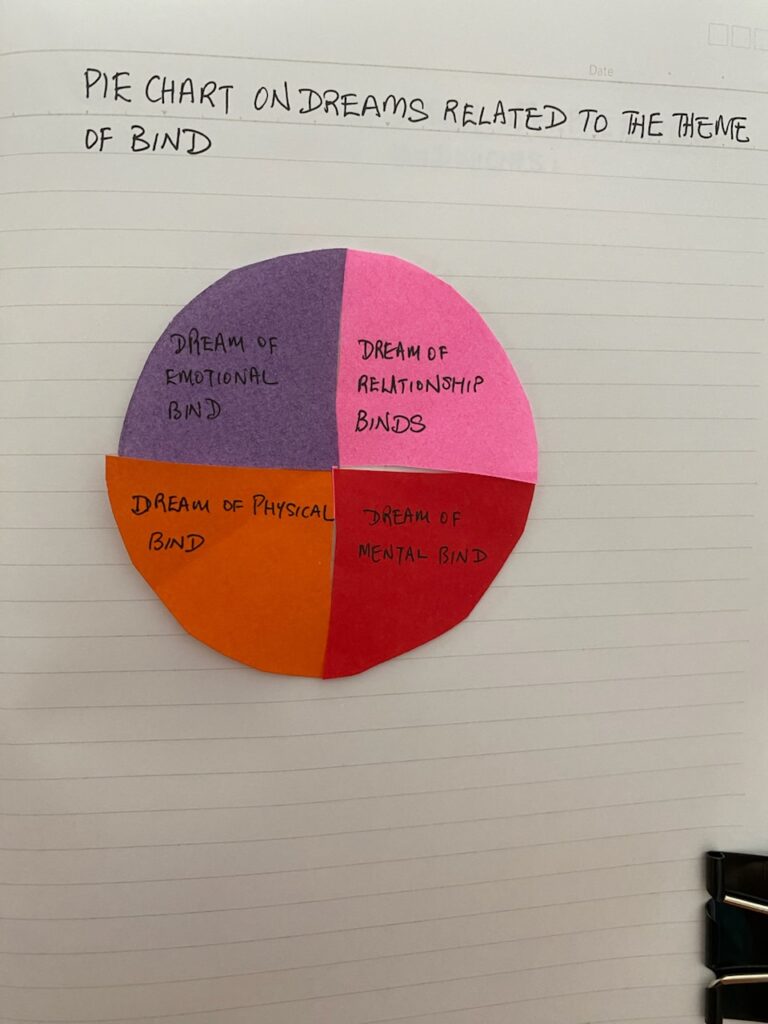 Date
PIE CHART ON DREAMS RELATED TO THE THEME
OF BIND
DREAM OF
EMOTIONAL
BIND
DREAM OF
RELATIONSHIP
BINDS
DREAM OF PHYSICAL
BIND
DREAM OF
MENTAL BIND